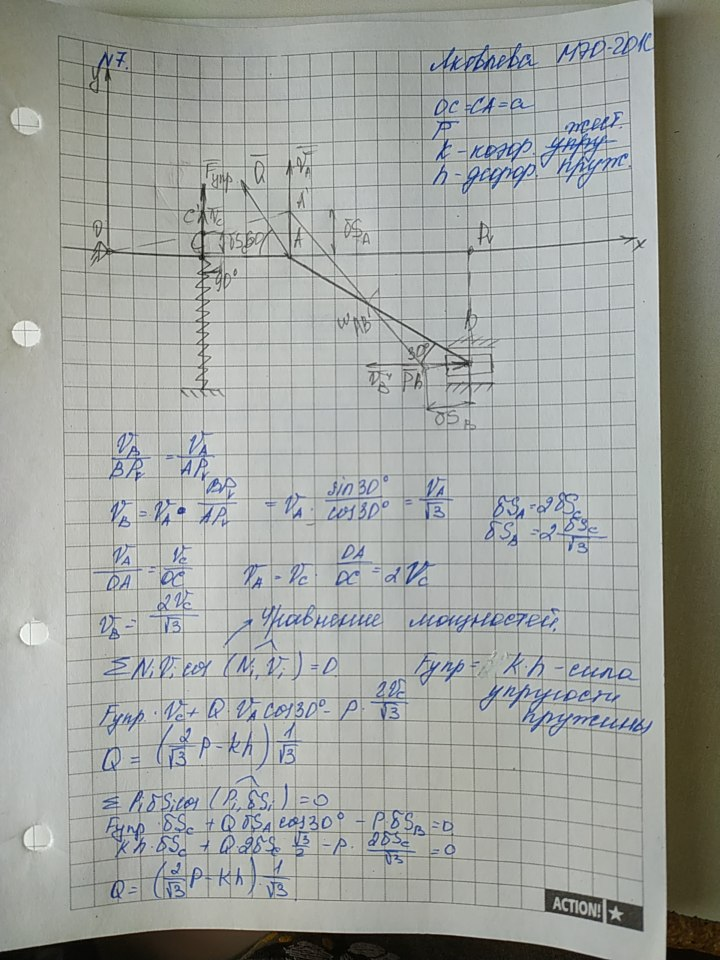 N7.
Яковлева М7О-201С
OC=CA=a
P̅
k - коэф. жест. упру
h - дефор. пруж.
y
F̅упр. Q̅ V̅A
C' V̅C A'
δSC 60° δSA
O C A Pv x
90°
ωAB B
30°
V̅B P̅ B'
δSB
VB/BPv = VA/APv
VB = VA · BPv/APv = VA · sin30°/cos30° = VA/√3
δSA = 2δSC
δSB = 2 δSC/√3
VA/OA = VC/OC VA = VC · OA/OC = 2VC
VB = 2VC/√3
Уравнение мощностей.
ΣNiVi cos(Ni, Vi) = 0
Fупр = k·h - сила упругости пружины
Fупр · VC + Q · VA cos30° - P · 2VC/√3
Q = (2/√3 P - kh) 1/√3
ΣPi δSi cos(Pi, δSi) = 0
Fупр · δSC + Q δSA cos30° - P · δSB = 0
kh · δSC + Q · 2δSC √3/2 - P · 2δSC/√3 = 0
Q = (2/√3 P - kh) · 1/√3
ACTION!